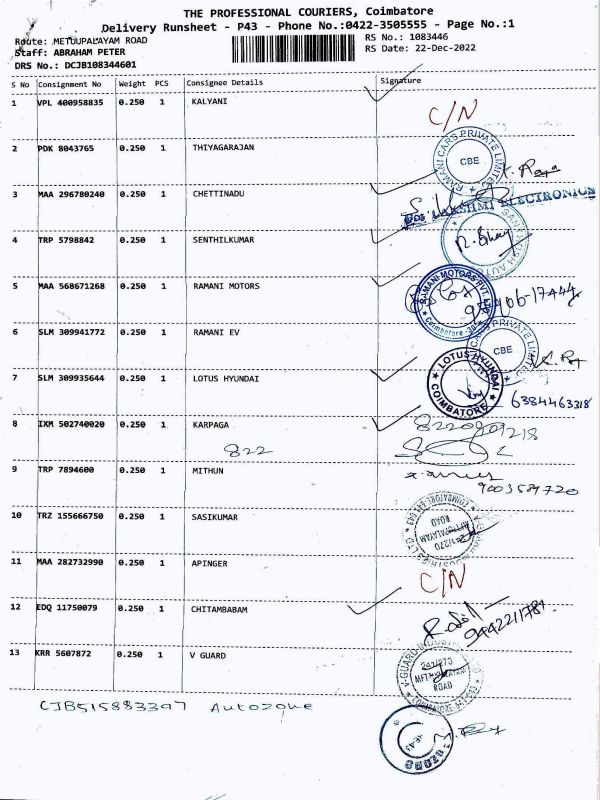 THE PROFESSIONAL COURIERS, Coimbatore
Delivery Runsheet - P43 - Phone No.:0422-3505555 - Page No.:1
Route: METUUPALAYAM ROAD
RS No.: 1083446
Staff: ABRAHAM PETER
RS Date: 22-Dec-2022
DRS No.: DCJB108344601
S No Consignment No Weight PCS Consignee Details Signature
1 VPL 400958835 0.250 1 KALYANI
C/N
2 PDK 8043765 0.250 1 THIYAGARAJAN
RAMANI CARS PRIVATE LIMITED CBE
3 MAA 296780240 0.250 1 CHETTINADU
LAKSHMI ELECTRONICS
4 TRP 5798842 0.250 1 SENTHILKUMAR
5 MAA 568671268 0.250 1 RAMANI MOTORS
RAMANI MOTORS PVT LTD
Coimbatore
6 SLM 309941772 0.250 1 RAMANI EV
CARS PRIVATE LIMITED CBE
7 SLM 309935644 0.250 1 LOTUS HYUNDAI
LOTUS HYUNDAI COIMBATORE
6384463318
8 IXM 502740020 0.250 1 KARPAGA
822
9 TRP 7894600 0.250 1 MITHUN
9003589720
10 TRZ 155666750 0.250 1 SASIKUMAR
METTUPALAYAM
ROAD
11 MAA 282732990 0.250 1 APINGER
C/N
12 EDQ 11750079 0.250 1 CHITAMBABAM
9442211781
13 KRR 5607872 0.250 1 V GUARD
V-GUARD INDUSTRIES
241/270
METTUPALAYAM
ROAD
CJB515883397 Autozone